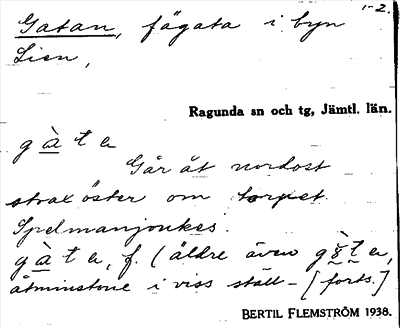 1-2.
Gatan, fägata i byn
Lien,
Ragunda sn och tg, Jämtl. län.
gàtα
Går åt nordost
strax öster om torpet
Spelmanjonkes.
gàtα, f. (äldre även gàtα,
åtminstone i viss ställ- [forts.]
BERTIL FLEMSTRÖM 1938.